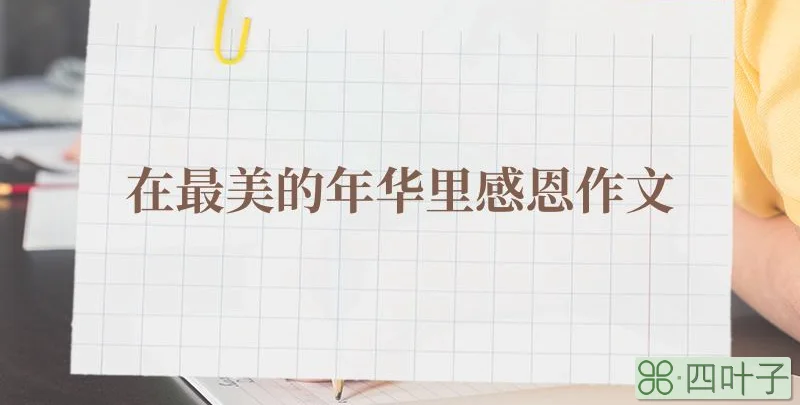 在最美的年华里感恩作文
四叶子